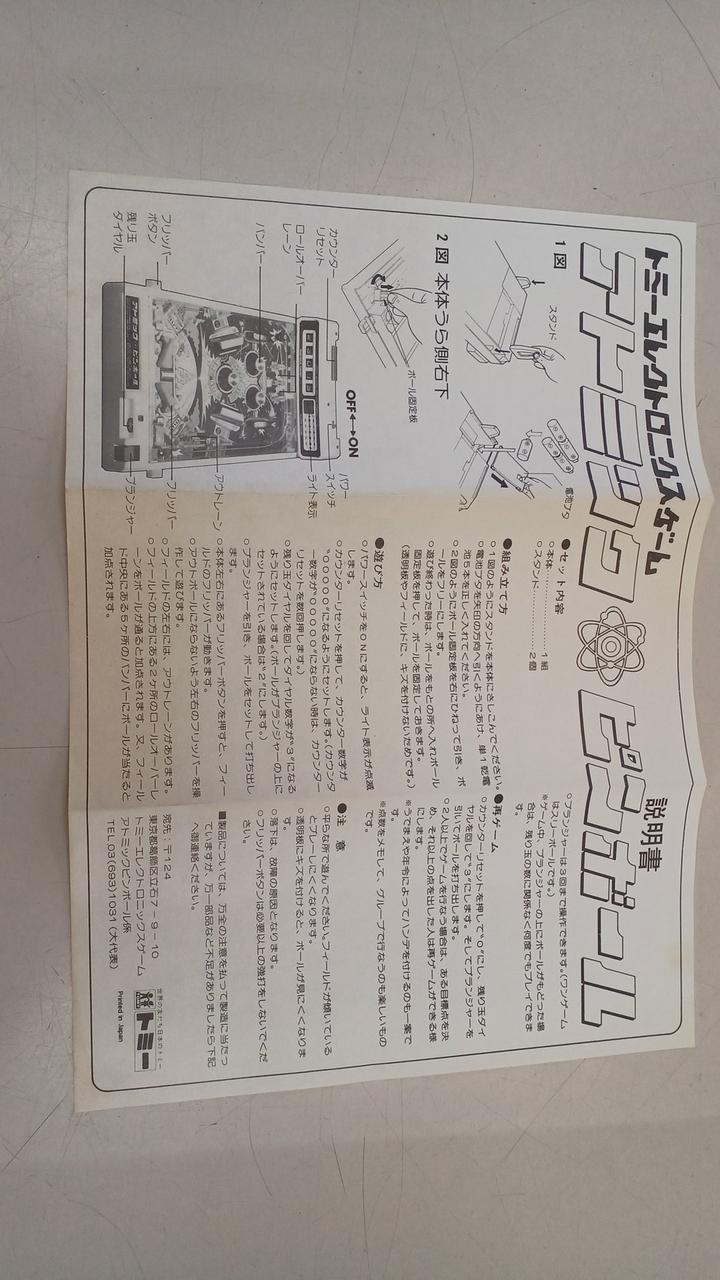 トミーエレクトロニクスゲーム
アトミック ピンボール
説明書
1図
スタンド
電池ブタ
2図 本体うら側右下
ボール固定板
カウンター
リセット
ロールオーバー
レーン
バンパー
フリッパー
ボタン
残り玉
ダイヤル
OFF↔ON
パワー
スイッチ
ライト表示
アウトレーン
フリッパー
プランジャー
アトミック・ピンボール
●セット内容
○本体……………………1組
○スタンド………………2個
●組み立て方
○1図のようにスタンドを本体にさしこんでください。
○電池ブタを矢印の方向へ引くようにあけ、単1乾電
池5本を正しく入れてください。
○2図のようにボール固定板を右にひねって引き、ボ
ールをフリーにします。
○遊び終わった時は、ボールをもとの所へ入れボール
固定板を押して、ボールを固定しておきます。
(透明板やフィールドに、キズを付けないためです。)
●遊び方
○パワースイッチをONにすると、ライト表示が点滅
します。
○カウンターリセットを押して、カウンター数字が
"00000"になるようにセットします。(カウンタ
ー数字が"00000"にならない時は、カウンター
リセットを数回押します。)
○残り玉ダイヤルを回してダイヤル数字が"3"になる
ようにセットします。(ボールがプランジャーの上に
セットされている場合は"2"にします。)
○プランジャーを引き、ボールをセットして打ち出し
ます。
○本体左右にあるフリッパーボタンを押すと、フィー
ルドのフリッパーが動きます。
○アウトボールにならないよう左右のフリッパーを操
作して遊びます。
○フィールドの左右には、アウトレーンがあります。
○フィールドの上方にある2ヶ所のロールオーバーレ
ーンをボールが通ると加点されます。又、フィール
ド中央にある5ヶ所のバンパーにボールが当たると
加点されます。
○プランジャーは3回まで操作できます。(ワンゲーム
はスリーボールです。)
※ゲーム中、プランジャーの上にボールがもどった場
合は、残り玉の数に関係なく何度でもプレイできま
す。
●再ゲーム
○カウンターリセットを押して"0"にし、残り玉ダイ
ヤルを回して"3"にします。そしてプランジャーを
引いてボールを打ち出します。
○2人以上でゲームを行なう場合は、ある目標点を決
め、それ以上の点を出した人は再ゲームができる様
にします。
※うでまえや年令によってハンデを付けるのも一案で
す。
※点数をメモして、グループで行なうのも楽しいもの
です。
●注 意
○平らな所で遊んでください。フィールドが傾いている
とプレーしにくくなります。
○透明板にキズを付けると、ボールが見にくくなりま
す。
○落下は、故障の原因となります。
○フリッパーボタンは必要以上の強打をしないでくだ
さい。
■製品については、万全の注意を払って製造に当たっ
ていますが、万一部品など不足がありましたら下記
へ御連絡ください。
宛先:〒124
東京都葛飾区立石7-9-10
トミーエレクトロニックスゲーム
アトミックピンボール係
TEL.03(693)1031(大代表)
世界の友だち日本のトミー
トミー
Printed in Japan